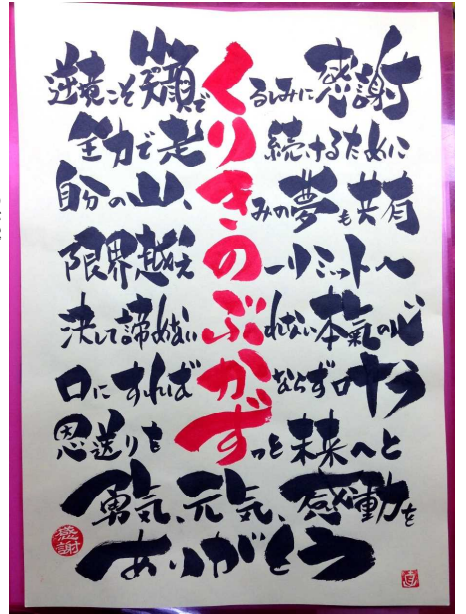 逆境こそ笑顔でくるしみに感謝
全力で走り続けるために
自分の山、きみの夢も共有
限界越えのーリミットへ
決して諦めないぶれない本氣の心
口にすればかならず叶う
恩送りをずっと未来へと
勇気、元気、感動を
ありがとう
感謝